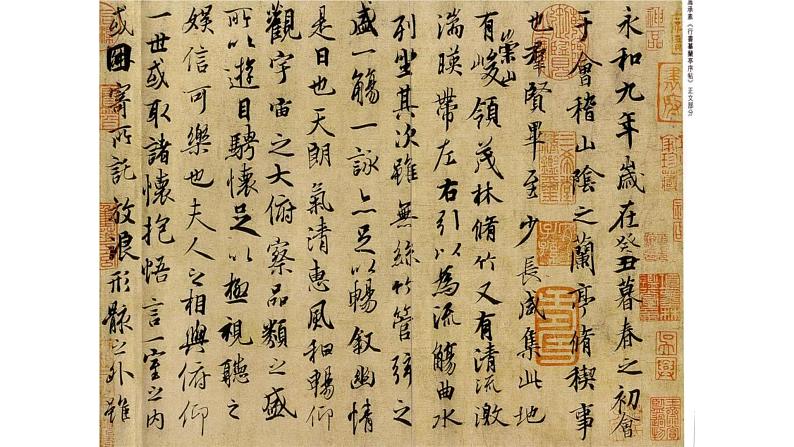 馮承素《行書摹蘭亭序帖》正文部分
神品
永和九年歲在癸丑暮春之初會
于會稽山陰之蘭亭脩稧事
也群賢畢至少長咸集此地
有崇山峻領茂林脩竹又有清流激
湍暎帶左右引以為流觴曲水
列坐其次雖無絲竹管弦之
盛一觴一詠亦足以暢敘幽情
是日也天朗氣清惠風和暢仰
觀宇宙之大俯察品類之盛
所以遊目騁懷足以極視聽之
娛信可樂也夫人之相與俯仰
一世或取諸懷抱悟言一室之內
或因寄所託放浪形骸之外雖